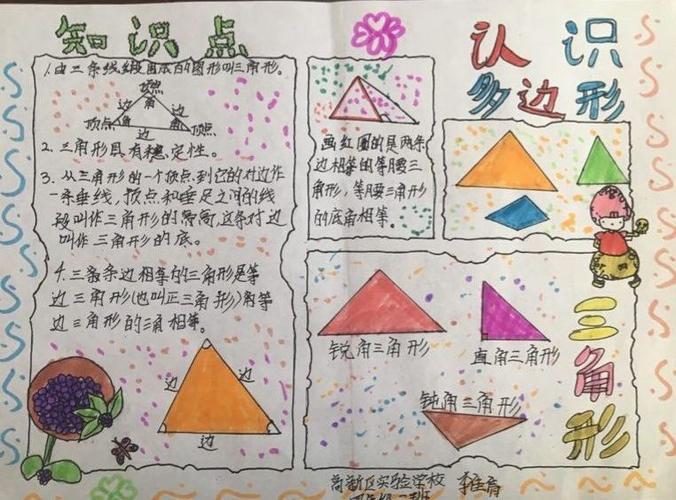 知识点
认识
多边形
1.由三条线段围成的图形叫三角形。
顶点
边 角 边
顶点 角 角 顶点
边
2.三角形具有稳定性。
3.从三角形的一个顶点到它的对边作
一条垂线,顶点和垂足之间的线
段叫作三角形的高,这条对边
叫作三角形的底。
4.三条边相等的三角形是等
边三角形(也叫正三角形)等
边三角形的三角相等。
边 边
边
画红圈的是两条
边相等的等腰三
角形,等腰三角形
的底角相等。
锐角三角形
直角三角形
钝角三角形
三
角
形
高新区实验学校